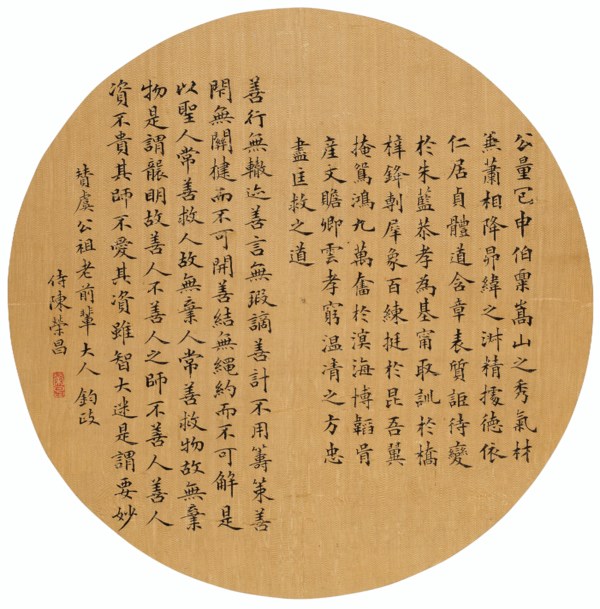 公量包申伯稟嵩山之秀氣材
兼蕭相降昴緯之淑精據德依
仁居貞體道含章表質詎待變
於朱藍恭孝為基甯取訓於橋
梓鋒剸犀象百練挺於昆吾翼
掩鴛鴻九萬奮於溟海博韜骨
產文贍卿雲孝窮溫清之方忠
盡匡救之道
善行無轍迹善言無瑕謫善計不用籌策善
閉無關楗而不可開善結無繩約而不可解是
以聖人常善救人故無棄人常善救物故無棄
物是謂襲明故善人不善人之師不善人善人
資不貴其師不愛其資雖智大迷是謂要妙
贊虞公祖老前輩大人鈞政
侍陳榮昌